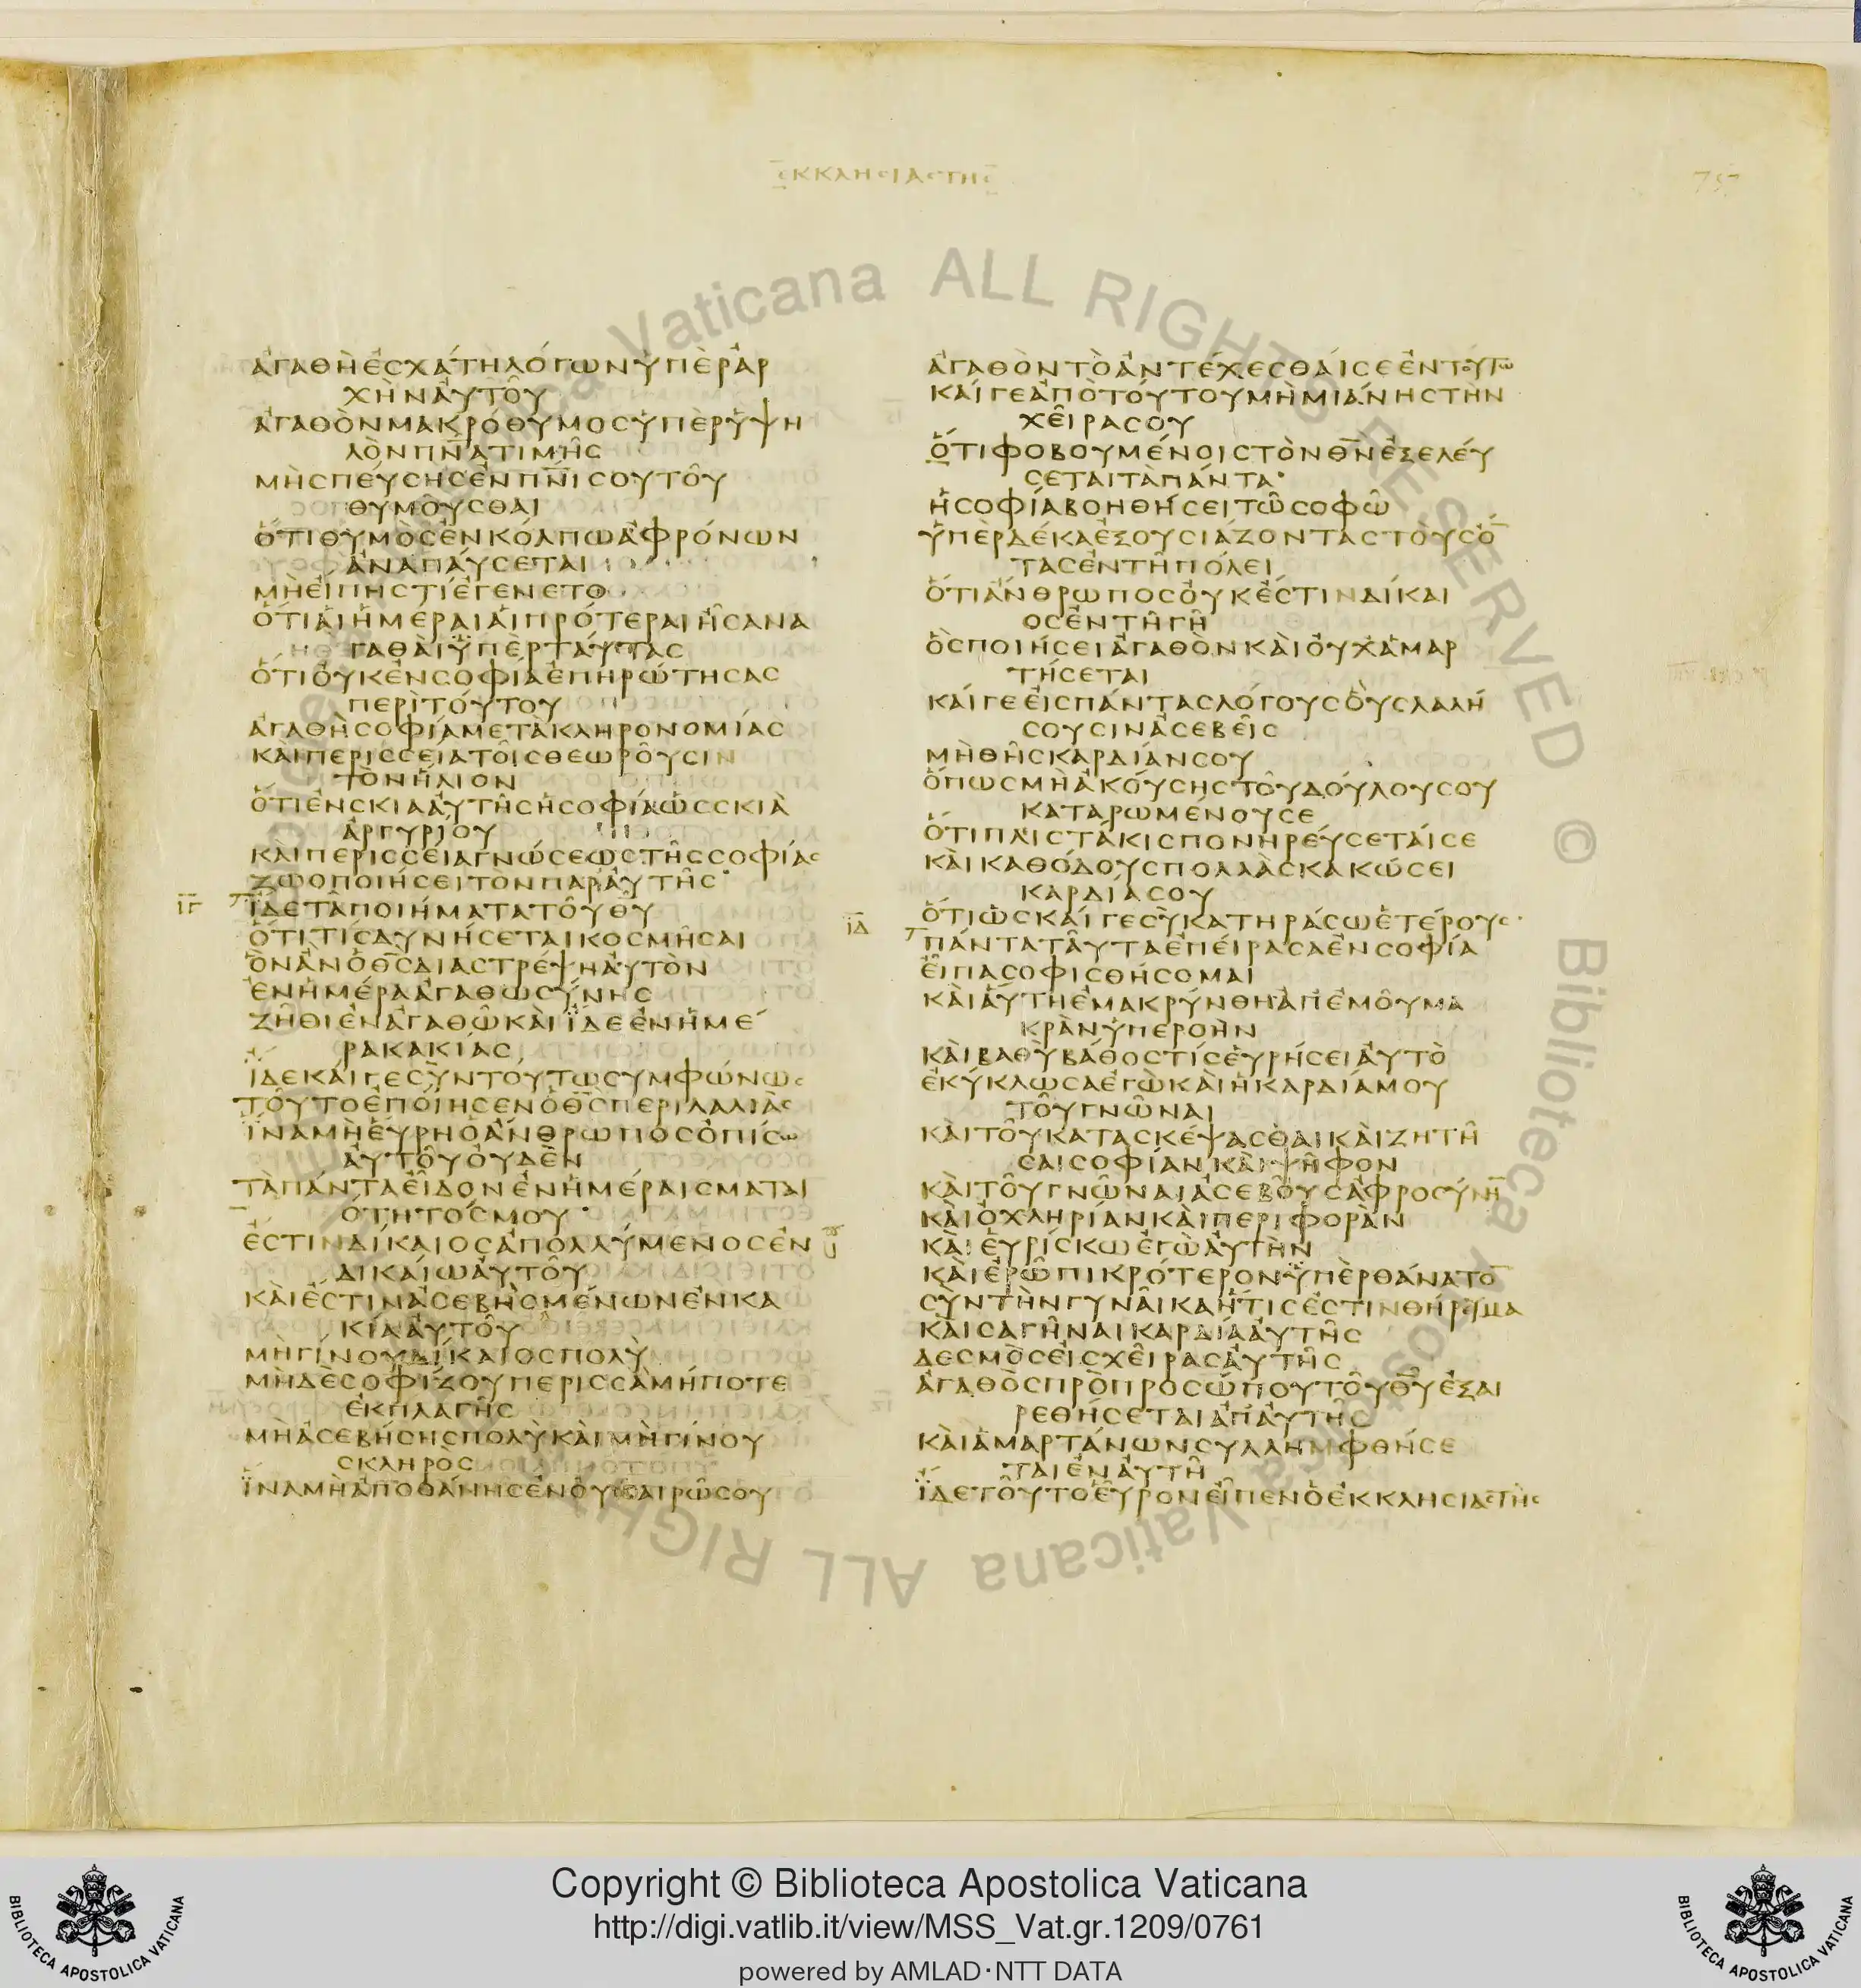 ΕΚΚΛΗϹΙΑϹΤΗϹ
757
ἈΓΑΘῊἘϹΧΆΤΗΛΌΓΩΝὙΠῈΡἈΡ
ΧῊΝἈΥΤΟῦ
ἈΓΑΘῸΝΜΑΚΡΌΘΥΜΟϹὙΠῈΡὙΨΗ
ΛῸΝΠΝ̅ΑΤΙΜῆϹ
ΜῊϹΠΕΎϹΗϹἘΝΠΝ̅ΙϹΟΥΤΟῦ
ΘΥΜΟῦϹΘΑΙ
ὍΤΙΘΥΜῸϹἘΝΚΌΛΠΩἈΦΡΌΝΩΝ
ἈΝΑΠΑΎϹΕΤΑΙ
ΜῊΕἼΠΗϹΤΊἘΓΈΝΕΤΟ
ὍΤΙΑἹἩΜΈΡΑΙΑἹΠΡΌΤΕΡΑΙἮϹΑΝΑ
ΓΑΘᾺΙὙΠῈΡΤΑΎΤΑϹ
ὍΤΙΟὐΚἘΝϹΟΦΙΑἘΠΗΡΏΤΗϹΑϹ
ΠΕΡῚΤΟΎΤΟΥ
ἈΓΑΘῊϹΟΦΊΑΜΕΤᾺΚΛΗΡΟΝΟΜΊΑϹ
ΚΑῚΠΕΡΙϹϹΕΊΑΤΟῖϹΘΕΩΡΟῦϹΙΝ
ΤῸΝἭΛΙΟΝ
ὍΤΙἘΝϹΚΙΑΑὐΤῆϹἩϹΟΦΊΑὩϹϹΚΙᾺ
ἈΡΓΥΡΊΟΥ
ΚΑΙΠΕΡΙϹϹΕΊΑΓΝΏϹΕΩϹΤῆϹϹΟΦΊΑϹ
ΖΩΟΠΟΙΉϹΕΙΤῸΝΠΑΡΑΥΤῆϹ
ΙΓ
ἼΔΕΤᾺΠΟΙΉΜΑΤΑΤΟῦΘ̅Υ
ὍΤΙΤΊϹΔΥΝΉϹΕΤΑΙΚΟϹΜῆϹΑΙ
ὋΝἊΝὉΘ̅ϹΔΙΑϹΤΡΈΨΗΑὐΤῸΝ
ἘΝἩΜΈΡΑἈΓΑΘΩϹΎΝΗϹ
ΖῆΘΙἘΝἈΓΑΘῶΚΑῚἼΔΕἘΝἩΜΈ
ΡΑΚΑΚΊΑϹ
ἼΔΕΚΑΊΓΕϹῪΝΤΟΥΤΩϹΥΜΦΏΝΩϹ
ΤΟῦΤΟἘΠΟΊΗϹΕΝὉΘ̅ϹΠΕΡΙΛΑΛΙᾶϹ
ἽΝΑΜῊΕὝΡΗὉἌΝΘΡΩΠΟϹὈΠΊϹΩ
ΑὐΤΟῦΟὐΔῈΝ
ΤᾺΠΆΝΤΑΕἾΔΟΝἘΝἩΜΈΡΑΙϹΜΑΤΑΙ
ΌΤΗΤΌϹΜΟΥ
ἜϹΤΙΝΔΊΚΑΙΟϹἈΠΟΛΛΎΜΕΝΟϹἘΝ
ΔΙΚΑΊΩΑὐΤΟῦ
ΚΑῚἜϹΤΙΝἈϹΕΒῊϹΜΈΝΩΝἘΝΚΑ
ΚΊΑΑὐΤΟῦ
ΜῊΓΊΝΟΥΔΊΚΑΙΟϹΠΟΛῪ
ΜΗΔῈϹΟΦΊΖΟΥΠΕΡΙϹϹᾺΜΉΠΟΤΕ
ἘΚΠΛΑΓῆϹ
ΜῊἈϹΕΒΉϹΗϹΠΟΛῪΚΑῚΜῊΓΊΝΟΥ
ϹΚΛΗΡῸϹ
ἽΝΑΜῊἈΠΟΘΆΝΗϹἘΝΟὐΚΑΙΡῶϹΟΥ
ἈΓΑΘῸΝΤῸἈΝΤΈΧΕϹΘΑΊϹΕἘΝΤΟΥΤΩ
ΚΑΊΓΕἈΠῸΤΟΎΤΟΥΜῊΜΙΆΝΗϹΤῊΝ
ΧΕῖΡΑϹΟΥ
ὍΤΙΦΟΒΟΥΜΈΝΟΙϹΤῸΝΘ̅ΝἘΞΕΛΕΎ
ϹΕΤΑΙΤᾺΠΆΝΤΑ
ἩϹΟΦΊΑΒΟΗΘΉϹΕΙΤῶϹΟΦῶ
ὙΠῈΡΔΈΚΑἘΞΟΥϹΙΆΖΟΝΤΑϹΤΟῪϹὌ̅
ΤΑϹἘΝΤῆΠΌΛΕΙ
ὍΤΙἌΝΘΡΩΠΟϹΟὐΚἜϹΤΙΝΔΊΚΑΙ
ΟϹἘΝΤῆΓῆ
ὋϹΠΟΙΉϹΕΙἈΓΑΘῸΝΚΑῚΟὐΧἉΜΑΡ
ΤΉϹΕΤΑΙ
ΚΑΊΓΕΕἸϹΠΆΝΤΑϹΛΌΓΟΥϹΟὓϹΛΑΛΉ
ϹΟΥϹΙΝἈϹΕΒΕῖϹ
ΜῊΘῆϹΚΑΡΔΊΑΝϹΟΥ
ὍΠΩϹΜῊἈΚΟΎϹΗϹΤΟῦΔΟΎΛΟΥϹΟΥ
ΚΑΤΑΡΩΜΈΝΟΥϹΕ
ὍΤΙΠΛΙϹΤΆΚΙϹΠΟΝΗΡΕΎϹΕΤΑΊϹΕ
ΚΑῚΚΑΘΌΔΟΥϹΠΟΛΛᾺϹΚΑΚΏϹΕΙ
ΚΑΡΔΊΑϹΟΥ
ὍΤΙὩϹΚΑΊΓΕϹῪΚΑΤΗΡΆϹΩἙΤΈΡΟΥϹ
ΙΔ
ΠΆΝΤΑΤΑῦΤΑἘΠΕΊΡΑϹΑἘΝϹΟΦΊΑ
ΕἾΠΑϹΟΦΙϹΘΉϹΟΜΑΙ
ΚΑῚΑὝΤΗἘΜΑΚΡΎΝΘΗἈΠἘΜΟῦΜΑ
ΚΡᾺΝὙΠΕΡΟῊΝ
ΚΑῚΒΑΘῪΒΆΘΟϹΤΊϹΕὙΡΉϹΕΙΑὐΤῸ
ἘΚΎΚΛΩϹΑἘΓῺΚΑῚἩΚΑΡΔΊΑΜΟΥ
ΤΟῦΓΝῶΝΑΙ
ΚΑῚΤΟῦΚΑΤΑϹΚΈΨΑϹΘΑΙΚΑῚΖΗΤῆ
ϹΑΙϹΟΦΊΑΝΚΑῚΨῆΦΟΝ
ΚΑῚΤΟῦΓΝῶΝΑΙἈϹΕΒΟῦϹἈΦΡΟϹΎΝΗ̅
ΚΑῚὈΧΛΗΡΊΑΝΚΑῚΠΕΡΙΦΟΡᾺΝ
ΚΑῚΕὙΡΊϹΚΩἘΓῺΑὐΤῊΝ
ΚΑῚἘΡῶΠΙΚΡΌΤΕΡΟΝὙΠῈΡΘΆΝΑΤΟ̅
ϹῪΝΤῊΝΓΥΝΑῖΚΑἭΤΙϹἘϹΤΙΝΘΉΡΕΥΜΑ
ΚΑῚϹΑΓῆΝΑΙΚΑΡΔΊΑΑὐΤῆϹ
ΔΕϹΜῸϹΕἸϹΧΕῖΡΑϹΑὐΤῆϹ
ἈΓΑΘῸϹΠΡῸΠΡΟϹΏΠΟΥΤΟῦΘ̅ΥἘΞΑΙ
ΡΕΘΉϹΕΤΑΙἈΠΑΥΤῆϹ
ΚΑῚἉΜΑΡΤΆΝΩΝϹΥΛΛΗΜΦΘΉϹΕ
ΤΑΙἘΝΑὐΤῆ
ἼΔΕΤΟῦΤΟΕὟΡΟΝΕἾΠΕΝὉἘΚΚΛΗϹΙΑϹΤΗϹ
ALL RIGHTS RESERVED © Biblioteca Apostolica Vaticana
Copyright © Biblioteca Apostolica Vaticana
http://digi.vatlib.it/view/MSS_Vat.gr.1209/0761
powered by AMLAD·NTT DATA
BIBLIOTECA APOSTOLICA VATICANA
BIBLIOTECA APOSTOLICA VATICANA